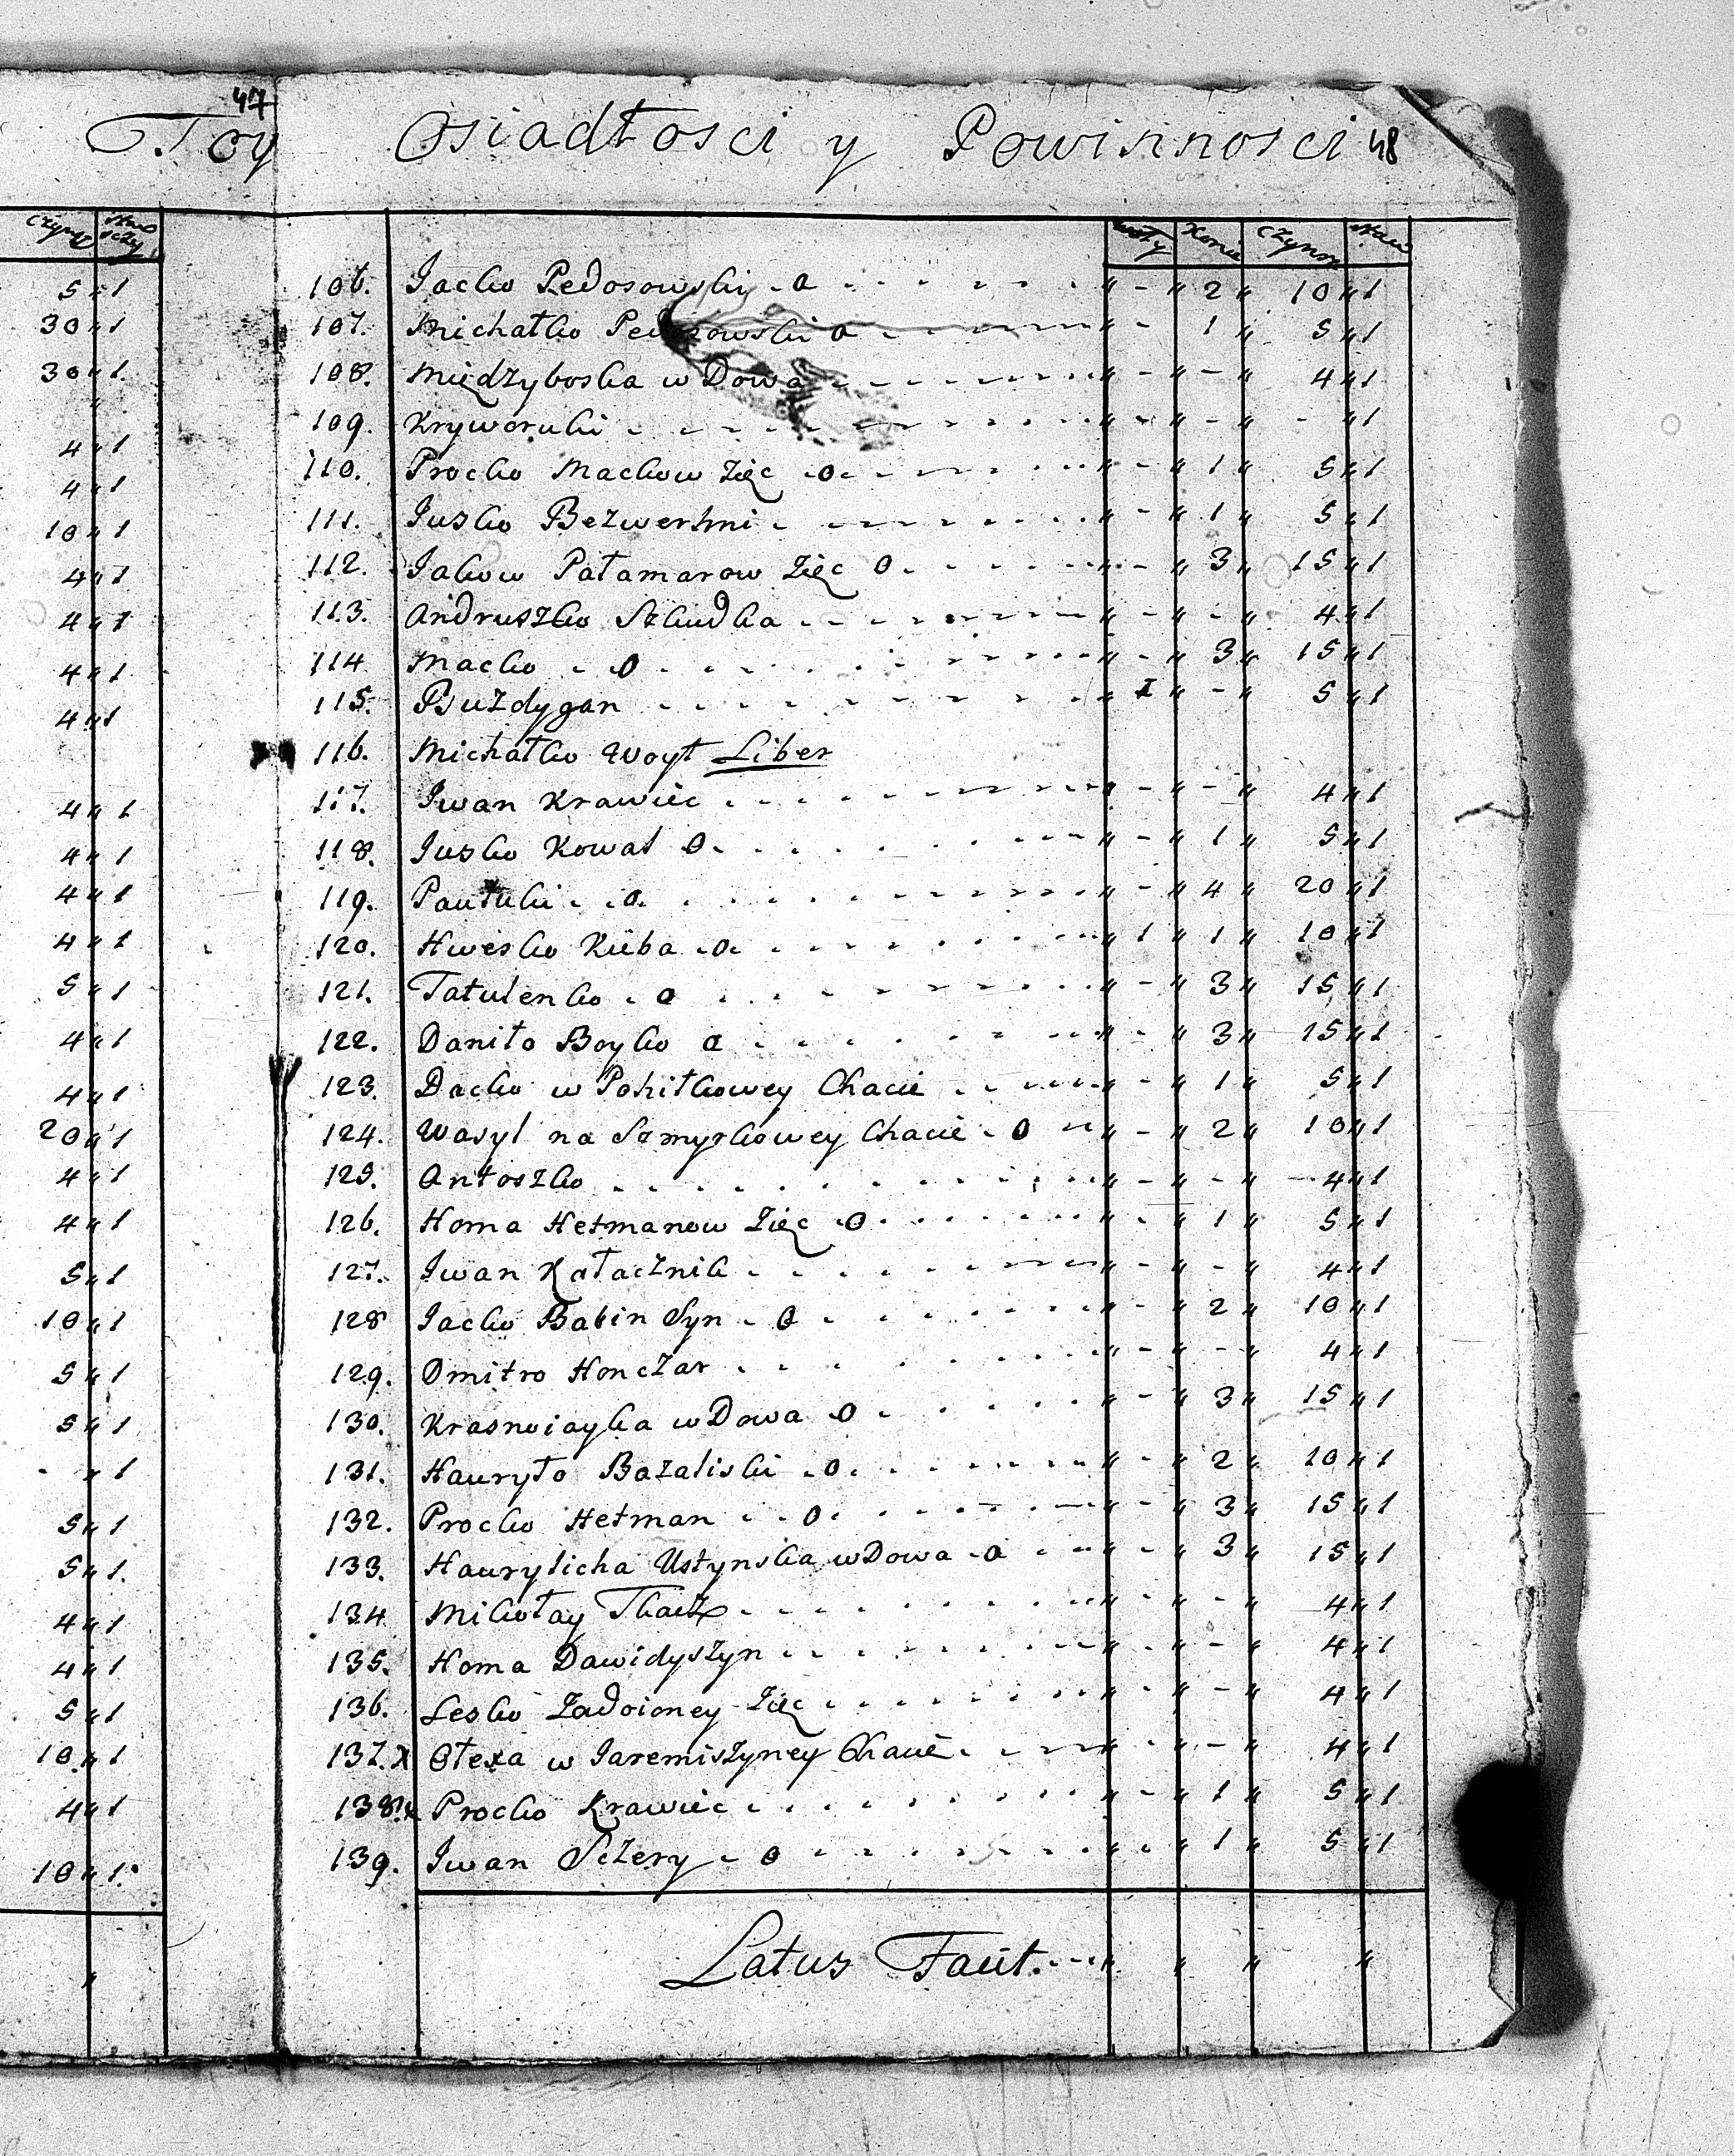 47
Toy Osiadłosci y Powinnosci 48
Czynsz
Woły Konie Czynsz
5 " 1
30 " 1
30 " 1
"
4 " 1
4 " 1
10 " 1
4 " 1
4 " 1
4 " 1
4 " 1
4 " 1
4 " 1
4 " 1
4 " 1
5 " 1
4 " 1
4 " 1
20 " 1
4 " 1
4 " 1
5 " 1
10 " 1
5 " 1
5 " 1
- " 1
5 " 1
5 " 1.
4 " 1
4 " 1
5 " 1
10 " 1
4 " 1
10 " 1.
"
106. Jacko Pedosowski - o " - " 2 " 10 " 1
107. Michałko o " - 1 " 5 " 1
108. Międzyboska wDowa " - " - " 4 " 1
109. Kryworuki " - " - " - " 1
110. Procko Mackow Zięc - o " - " 1 " 5 " 1
111. Jusko Bezwerhni " - " 1 " 5 " 1
112. Jakow Pałamarow Zięc o " - " 3 " 15 " 1
113. Andruszko Szkudka " - " - " 4 " 1
114 Macko o " - " 3 " 15 " 1
115. Buzdygan " 1 " - " 5 " 1
116. Michałko Woyt Liber
117. Iwan Krawiec " - " - " 4 " 1
118. Jusko Kowal o " - " 1 " 5 " 1
119. o " - " 4 " 20 " 1
120. Hwesko Kuba - o " 1 " 1 " 10 " 1
121. Tatulenko - o " - " 3 " 15 " 1
122. Daniło Boyko o " - " 3 " 15 " 1
123. Dacko w Pohiłkowey Chacie " - " 1 " 5 " 1
124. Wasyl na Szmyrkowey Chacie - o " - " 2 " 10 " 1
125. Antoszko " - " - " 4 " 1
126. Homa Hetmanow Zięc - o " - " 1 " 5 " 1
127. Iwan Kołacznik " - " - " 4 " 1
128 Jacko Babin Syn - o " - " 2 " 10 " 1
129. Dmitro Honczar " - " - " 4 " 1
130. Krasnoiayka wDowa o " - " 3 " 15 " 1
131. Hauryło Bazaliski - o " - " 2 " 10 " 1
132. Procko Hetman - o " - " 3 " 15 " 1
133. Haurylicha Ustynska wDowa - o " - " 3 " 15 " 1
134 Mikołay Tkacz " - " - " 4 " 1
135. Homa Dawidyszyn " - " - " 4 " 1
136. Lesko Zadoioney Zięc " - " - " 4 " 1
137. x Ołexa w Jaremiszyney Chacie " - " - " 4 " 1
138. x Procko Krawiec " - " 1 " 5 " 1
139. Iwan Sczery - o " - " 1 " 5 " 1
Latus Faut. " " " "